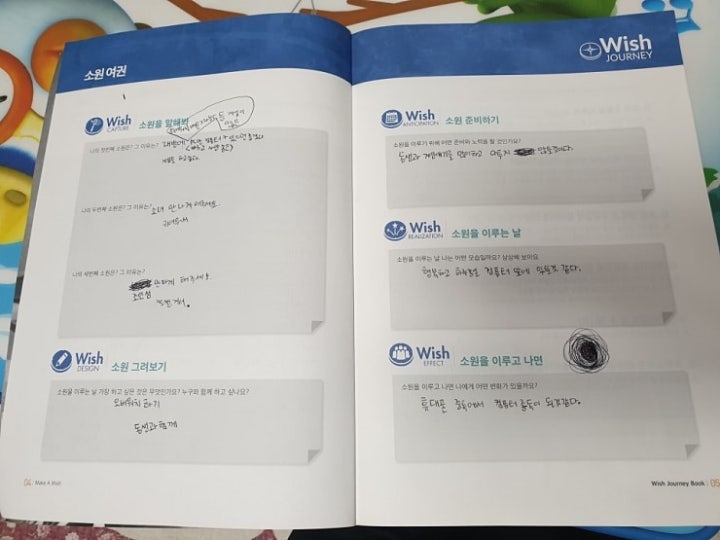 소원 여권
Wish
CAPTURE
소원을 말해봐
나의 첫번째 소원은? 그 이유는?
컴퓨터
나의 두번째 소원은? 그 이유는?
만나게 해주세요.
나의 세번째 소원은? 그 이유는?
만나게 해주세요.
조인성
잘생겨서.
Wish
DESIGN
소원 그려보기
소원을 이루는 날 가장 하고 싶은 것은 무엇인가요? 누구와 함께 하고 싶나요?
오버워치 하기
동생과 함께
04 Make A Wish
Wish
JOURNEY
Wish
ANTICIPATION
소원 준비하기
소원을 이루기 위해 어떤 준비와 노력을 할 것인가요?
동생과 많이하고 다투지 않을것이다.
Wish
REALIZATION
소원을 이루는 날
소원을 이루는 날 나는 어떤 모습일까요? 상상해 보아요
행복하고 컴퓨터 앞에 있을것 같다.
Wish
EFFECT
소원을 이루고 나면
소원을 이루고 나면 나에게 어떤 변화가 있을까요?
휴대폰 중독에서 컴퓨터 중독이 될것같다.
Wish Journey Book 05